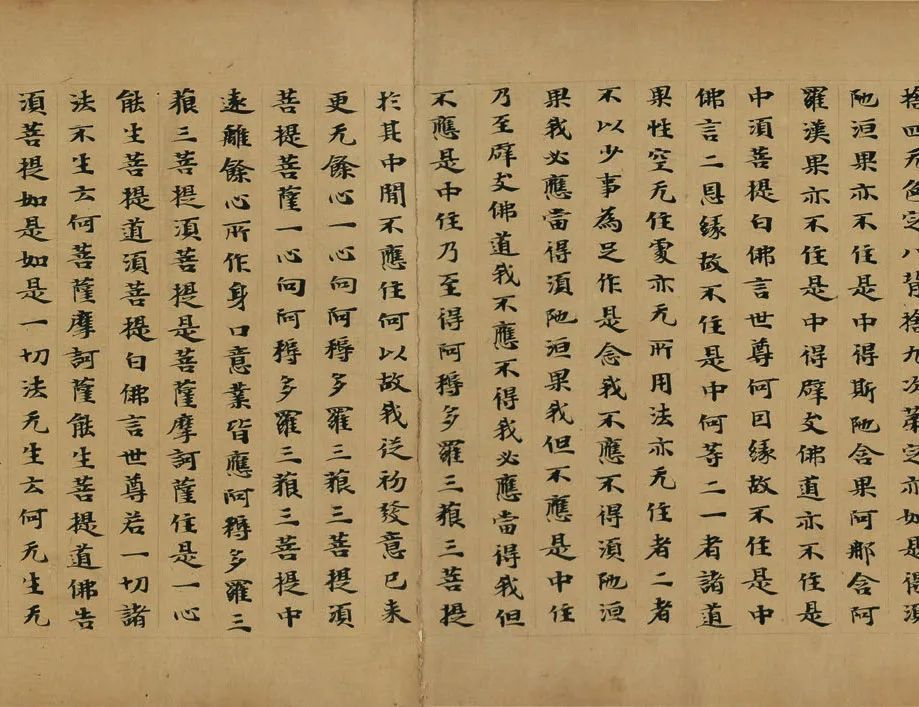 捨四无色定八背捨九次第定亦如是得須
陁洹果亦不住是中得斯陁含果阿那含阿
羅漢果亦不住是中得辟支佛道亦不住是
中須菩提白佛言世尊何因緣故不住是中
佛言二因緣故不住是中何等二一者諸道
果性空无住處亦无所用法亦无住者二者
不以少事為足作是念我不應不得須陁洹
果我必應當得須陁洹果我但不應是中住
乃至辟支佛道我不應不得我必應當得我但
不應是中住乃至得阿耨多羅三藐三菩提
於其中間不應住何以故我從初發意已来
更无餘心一心向阿耨多羅三藐三菩提須
菩提菩薩一心向阿耨多羅三藐三菩提中
遠離餘心所作身口意業皆應阿耨多羅三
藐三菩提須菩提是菩薩摩訶薩住是一心
能生菩提道須菩提白佛言世尊若一切諸
法不生云何菩薩摩訶薩能生菩提道佛告
須菩提如是如是一切法无生云何无生无